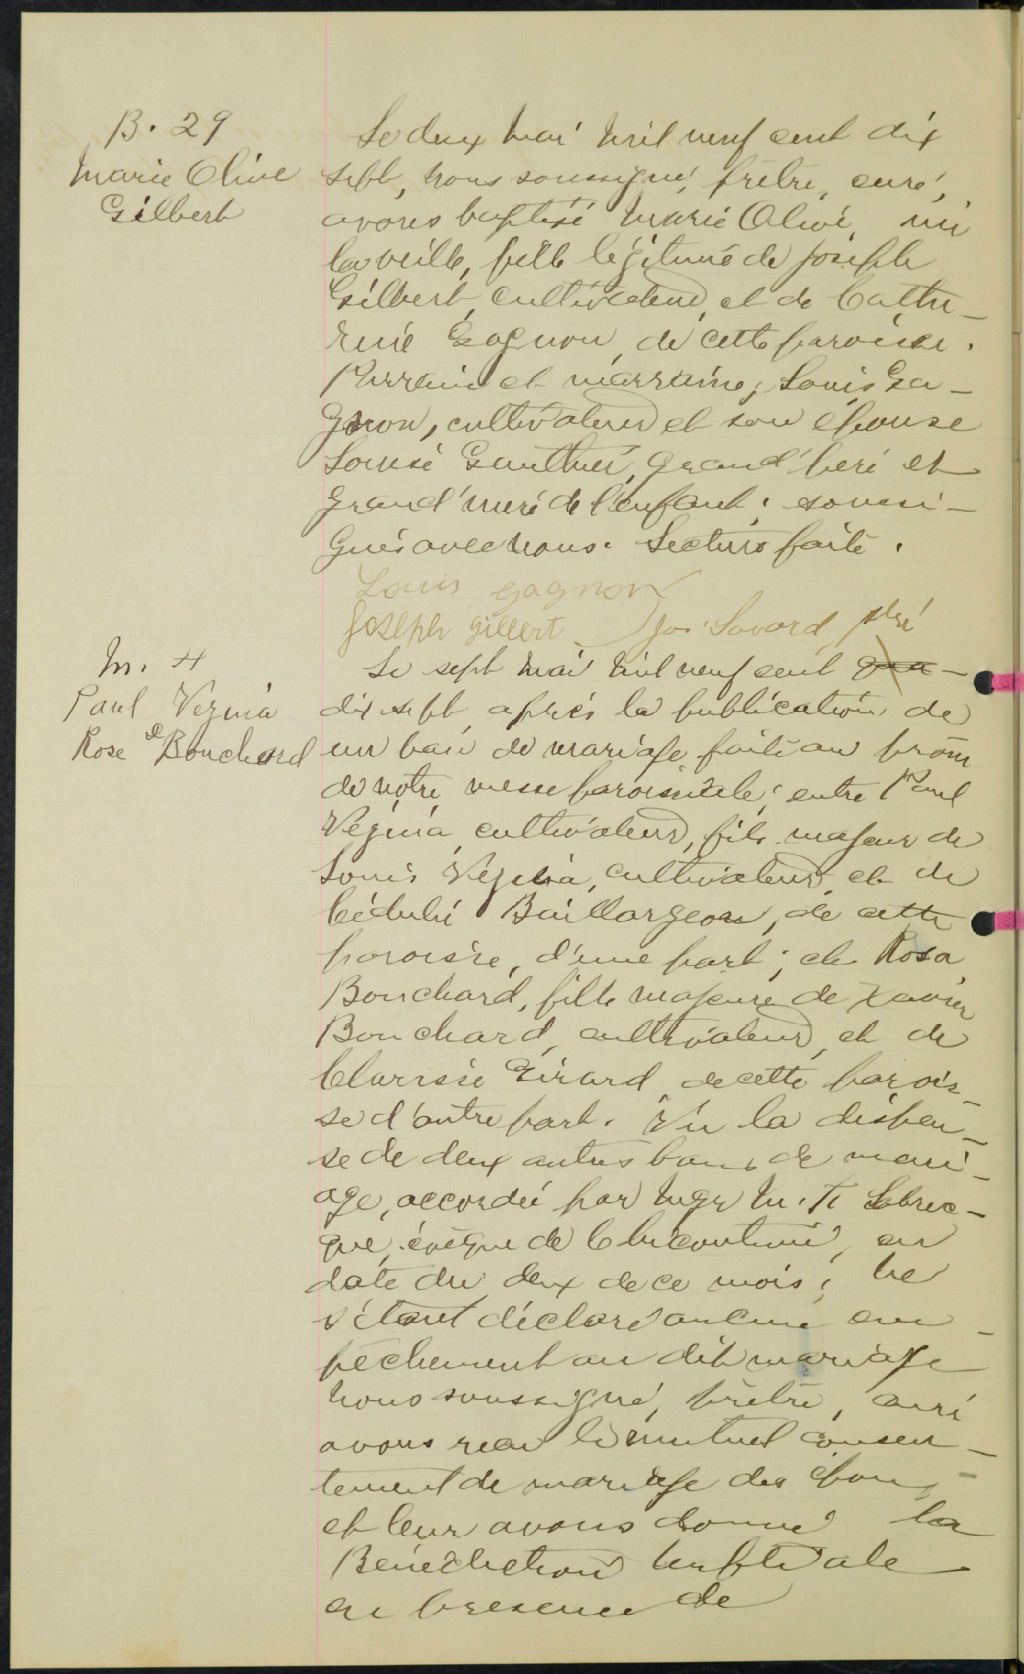 B. 29
Marie Olive
Gilbert
Le deux Mai Mil neuf cent dix
sept, nous soussigné, prêtre, curé,
avons baptisé Marie Olive, née
la veille, fille légitime de Joseph
Gilbert, cultivateur, et de Cathe-
rine Gagnon, de cette paroisse.
Parrain et marraine, Louis Ga-
gnon, cultivateur et son épouse
Louise Gauthier, grand'père et
grand'mère de l'enfant. soussi-
gnés avec nous. Lecture faite.
Louis gagnon
Joseph gilbert Jos. Savard ptre
M. 4
Paul Vézina
&
Rose Bouchard
Le sept Mai Mil neuf cent
dix sept, après la publication de
un ban de mariage faite au prône
de notre messe paroissiale; entre Paul
Vézina, cultivateur, fils majeur de
Louis Vézina, cultivateur et de
Cédulie Baillargeon, de cette
paroisse, d'une part; et Rosa
Bouchard, fille majeure de Xavier
Bouchard, cultivateur, et de
Clarisse Girard de cette parois-
se d'autre part. Vu la dispen-
se de deux autres bans de mari-
age, accordée par Mgr M. T. Labrec-
que, évêque de Chicoutimi, en
date du deux de ce mois; ne
s'étant déclaré aucun em-
pêchement au dit mariage
nous soussigné, prêtre, curé
avons reçu le mutuel consen-
tement de mariage des époux
et leur avons donné la
Bénédiction Nuptiale
en présence de